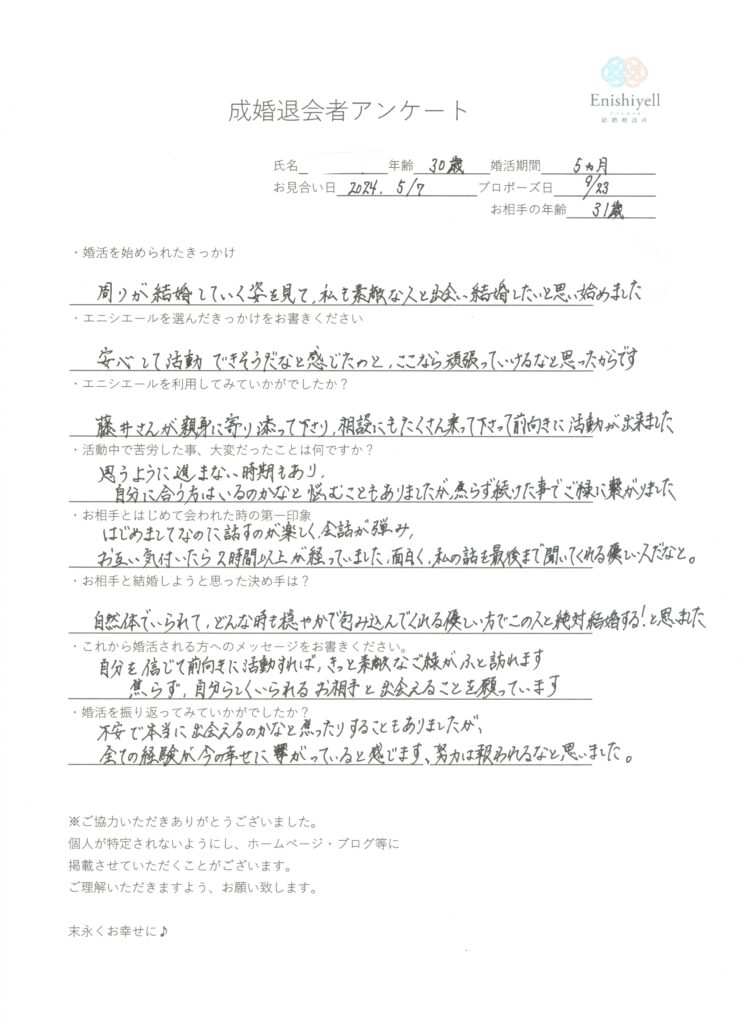 Enishiyell
エニシエール
結婚相談所
成婚退会者アンケート
氏名 年齢 30歳 婚活期間 5ヵ月
お見合い日 2024. 5/7 プロポーズ日 9/23
お相手の年齢 31歳
・婚活を始められたきっかけ
周りが結婚していく姿を見て、私も素敵な人と出会い結婚したいと思い始めました
・エニシエールを選んだきっかけをお書きください
安心して活動できそうだなと感じたのと、ここなら頑張っていけるなと思ったからです
・エニシエールを利用してみていかがでしたか？
藤井さんが親身に寄り添って下さり、相談にもたくさん乗って下さって前向きに活動が出来ました
・活動中で苦労した事、大変だったことは何ですか？
思うように進まない時期もあり、
自分に合う方はいるのかなと悩むこともありましたが、焦らず続けた事でご縁に繋がりました
・お相手とはじめて会われた時の第一印象
はじめましてなのに話すのが楽しく、会話が弾み、
お互い気付いたら2時間以上が経っていました。面白く、私の話を最後まで聞いてくれる優しい人だなと。
・お相手と結婚しようと思った決め手は？
自然体でいられて、どんな時も穏やかで包み込んでくれる優しい方でこの人と絶対結婚する！と思いました
・これから婚活される方へのメッセージをお書きください。
自分を信じて前向きに活動すれば、きっと素敵なご縁がふと訪れます
焦らず、自分らしくいられるお相手と出会えることを願っています
・婚活を振り返ってみていかがでしたか？
不安で本当に出会えるのかなと焦ったりすることもありましたが、
全ての経験が今の幸せに繋がっていると感じます、努力は報われるなと思いました。
※ご協力いただきありがとうございました。
個人が特定されないようにし、ホームページ・ブログ等に
掲載させていただくことがございます。
ご理解いただきますよう、お願い致します。
末永くお幸せに♪